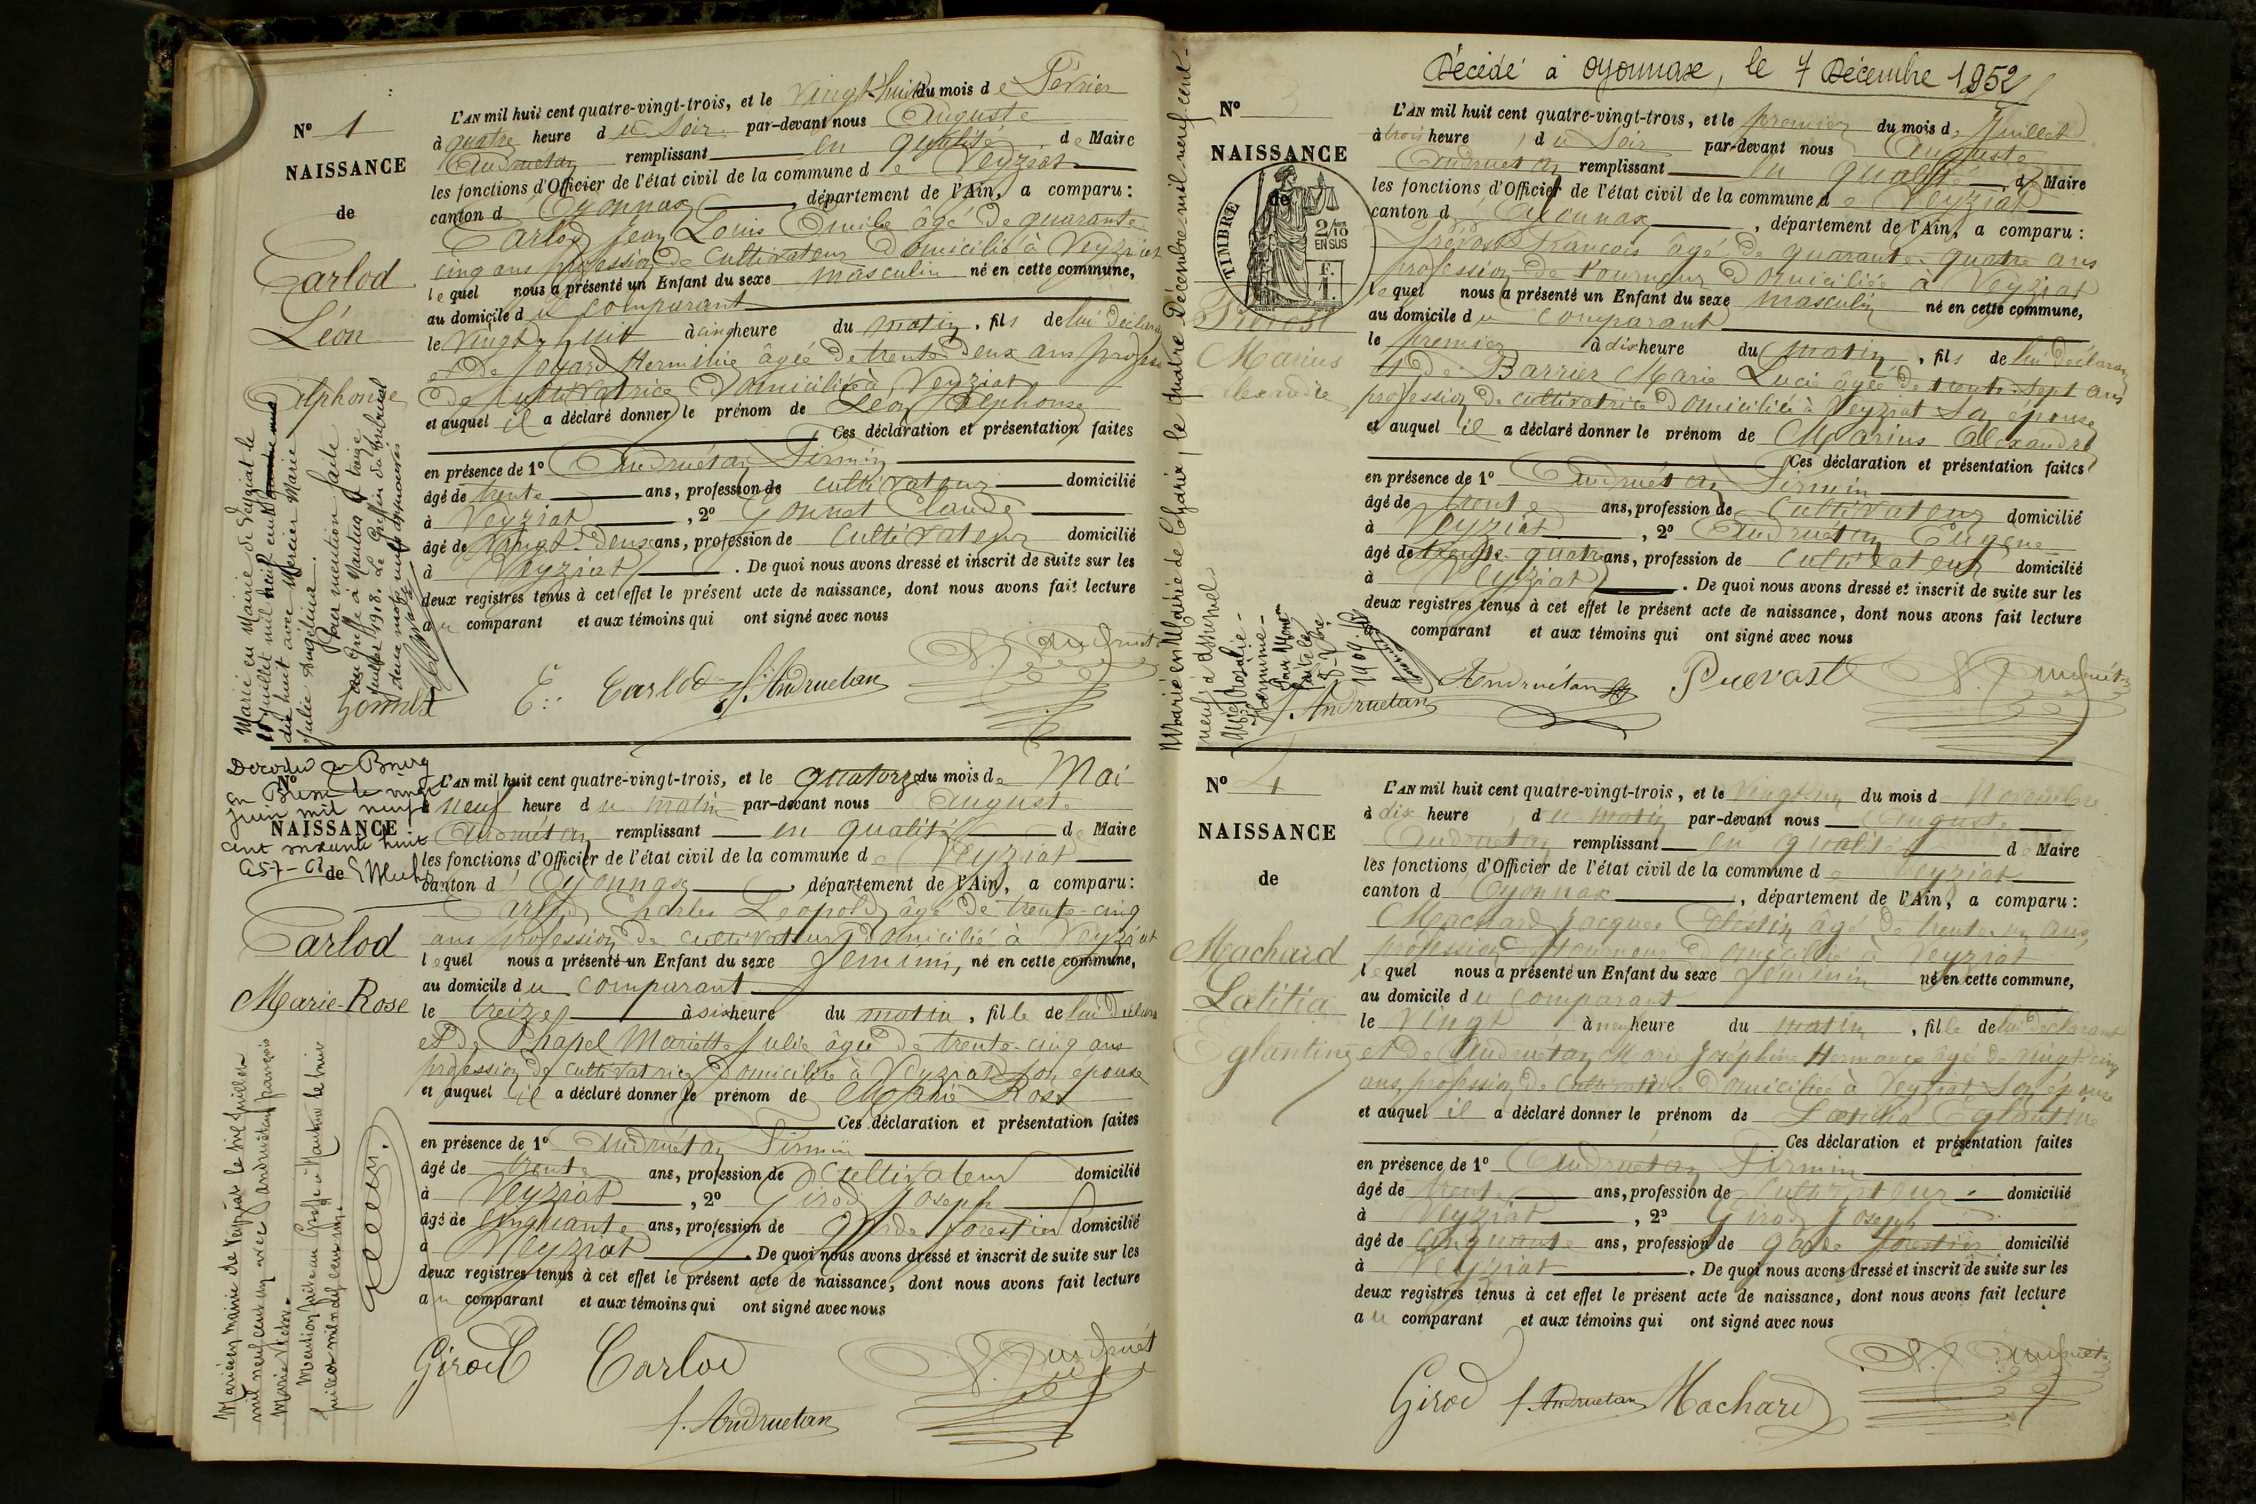 N° 1
NAISSANCE
de
Carlod
Léon
Alphonse
Marié en Mairie de Veyziat le
juillet mil neuf cent
dix huit avec Mercier Marie
Julie Angelina.
Pour mention faite
au Greffe à Nantua le treize
juillet 1918. Le Greffier du tribunal
deux mots nuls approuvés
L'AN mil huit cent quatre-vingt-trois, et le vingt-huit du mois de Février
à quatre heure du Soir par-devant nous Auguste
Andruétan remplissant en qualité de Maire
les fonctions d'Officier de l'état civil de la commune de Veyziat
canton d'Oyonnax, département de l'Ain, a comparu:
Carlod Jean Louis Emile âgé de quarante
cinq ans profession de cultivateur domicilié à Veyziat
lequel nous a présenté un Enfant du sexe masculin né en cette commune,
au domicile du comparant
le vingt-huit à cinq heure du matin, fils de lui déclarant
et de Joyard Herminie âgée de trente deux ans profession
de cultivatrice domiciliée à Veyziat
et auquel il a déclaré donner le prénom de Léon Alphonse
Ces déclaration et présentation faites
en présence de 1° Andruétan Firmin
âgé de trente ans, profession de cultivateur domicilié
à Veyziat, 2° Gonnet Claude
âgé de vingt-deux ans, profession de cultivateur domicilié
à Veyziat. De quoi nous avons dressé et inscrit de suite sur les
deux registres tenus à cet effet le présent acte de naissance, dont nous avons fait lecture
au comparant et aux témoins qui ont signé avec nous
Gonnet E. Carlod f. Andruetan
N°
NAISSANCE
de
Décédée à Bourg
en Bresse le vingt
juin mil neuf
cent soixante huit
Carlod
Marie-Rose
Mariée en mairie de Veyziat le six juillet
mil neuf cent un avec Andruétan françois
Marie Victor.
Mention faite au Greffe à Nantua le huit
juillet mil neuf cent un.
L'AN mil huit cent quatre-vingt-trois, et le quatorze du mois de Mai
à neuf heure du matin par-devant nous Auguste
Andruétan remplissant en qualité de Maire
les fonctions d'Officier de l'état civil de la commune de Veyziat
canton d'Oyonnax, département de l'Ain, a comparu:
Carlod Charles Léopold âgé de trente-cinq
ans profession de cultivateur domicilié à Veyziat
lequel nous a présenté un Enfant du sexe feminin, né en cette commune,
au domicile du comparant
le treize à six heure du matin, fille de lui déclarant
et de Chapel Mariette Julie âgée de trente-cinq ans
profession de cultivatrice domiciliée à Veyziat son épouse
et auquel il a déclaré donner le prénom de Marie Rose
Ces déclaration et présentation faites
en présence de 1° Andruétan Firmin
âgé de trente ans, profession de cultivateur domicilié
à Veyziat, 2° Girod Joseph
âgé de cinquante ans, profession de garde forestier domicilié
à Veyziat. De quoi nous avons dressé et inscrit de suite sur les
deux registres tenus à cet effet le présent acte de naissance, dont nous avons fait lecture
au comparant et aux témoins qui ont signé avec nous
Girod Carlod
f. Andruetan
Décédé à Oyonnax, le 7 Décembre 1952
N° 3
NAISSANCE
de
TIMBRE
2/10
EN SUS
F.
1
Prévost
Marius
Alexandre
Marié en Mairie de le quatre Décembre mil neuf cent
neuf à
Rosalie
Herminie
L'AN mil huit cent quatre-vingt-trois, et le premier du mois de Juillet
à trois heure du Soir par-devant nous Auguste
Andruetan remplissant en qualité de Maire
les fonctions d'Officier de l'état civil de la commune de Veyziat
canton d'Oyonnax, département de l'Ain, a comparu:
Prévost francois âgé de quarante-quatre ans
profession de tourneur domicilié à Veyziat
lequel nous a présenté un Enfant du sexe masculin né en cette commune,
au domicile du comparant
le premier à dix heure du matin, fils de lui déclarant
et de Barrier Marie Lucie âgée de trente-sept ans
profession de cultivatrice domiciliée à Veyziat Son épouse
et auquel il a déclaré donner le prénom de Marius Alexandre
Ces déclaration et présentation faites
en présence de 1° Andruétan Firmin
âgé de trente ans, profession de cultivateur domicilié
à Veyziat, 2° Andruétan Eugene
âgé de trente quatre ans, profession de cultivateur domicilié
à Veyziat. De quoi nous avons dressé et inscrit de suite sur les
deux registres tenus à cet effet le présent acte de naissance, dont nous avons fait lecture
comparant et aux témoins qui ont signé avec nous
f. Andruetan Andruétan Prevost
N° 4
NAISSANCE
de
Machard
Lætitia
Eglantine
L'AN mil huit cent quatre-vingt-trois, et le vingt-un du mois de Novembre
à dix heure du matin par-devant nous Auguste
Andruetan remplissant en qualité de Maire
les fonctions d'Officier de l'état civil de la commune de Veyziat
canton d'Oyonnax, département de l'Ain, a comparu:
Machard Jacques Célestin âgé de trente-un ans,
profession de tourneur domicilié à Veyziat
lequel nous a présenté un Enfant du sexe féminin né en cette commune,
au domicile du comparant
le vingt à neuf heure du matin, fille de lui déclarant
et de Andruétan Marie Joséphine Hermance âgé de vingt-cinq
ans, profession de cultivatrice domiciliée à Veyziat Son épouse
et auquel il a déclaré donner le prénom de Lætitia Eglantine
Ces déclaration et présentation faites
en présence de 1° Andruétan Firmin
âgé de trente ans, profession de cultivateur domicilié
à Veyziat, 2° Girod Joseph
âgé de cinquante ans, profession de garde forestier domicilié
à Veyziat. De quoi nous avons dressé et inscrit de suite sur les
deux registres tenus à cet effet le présent acte de naissance, dont nous avons fait lecture
au comparant et aux témoins qui ont signé avec nous
Girod f. Andruetan Machard